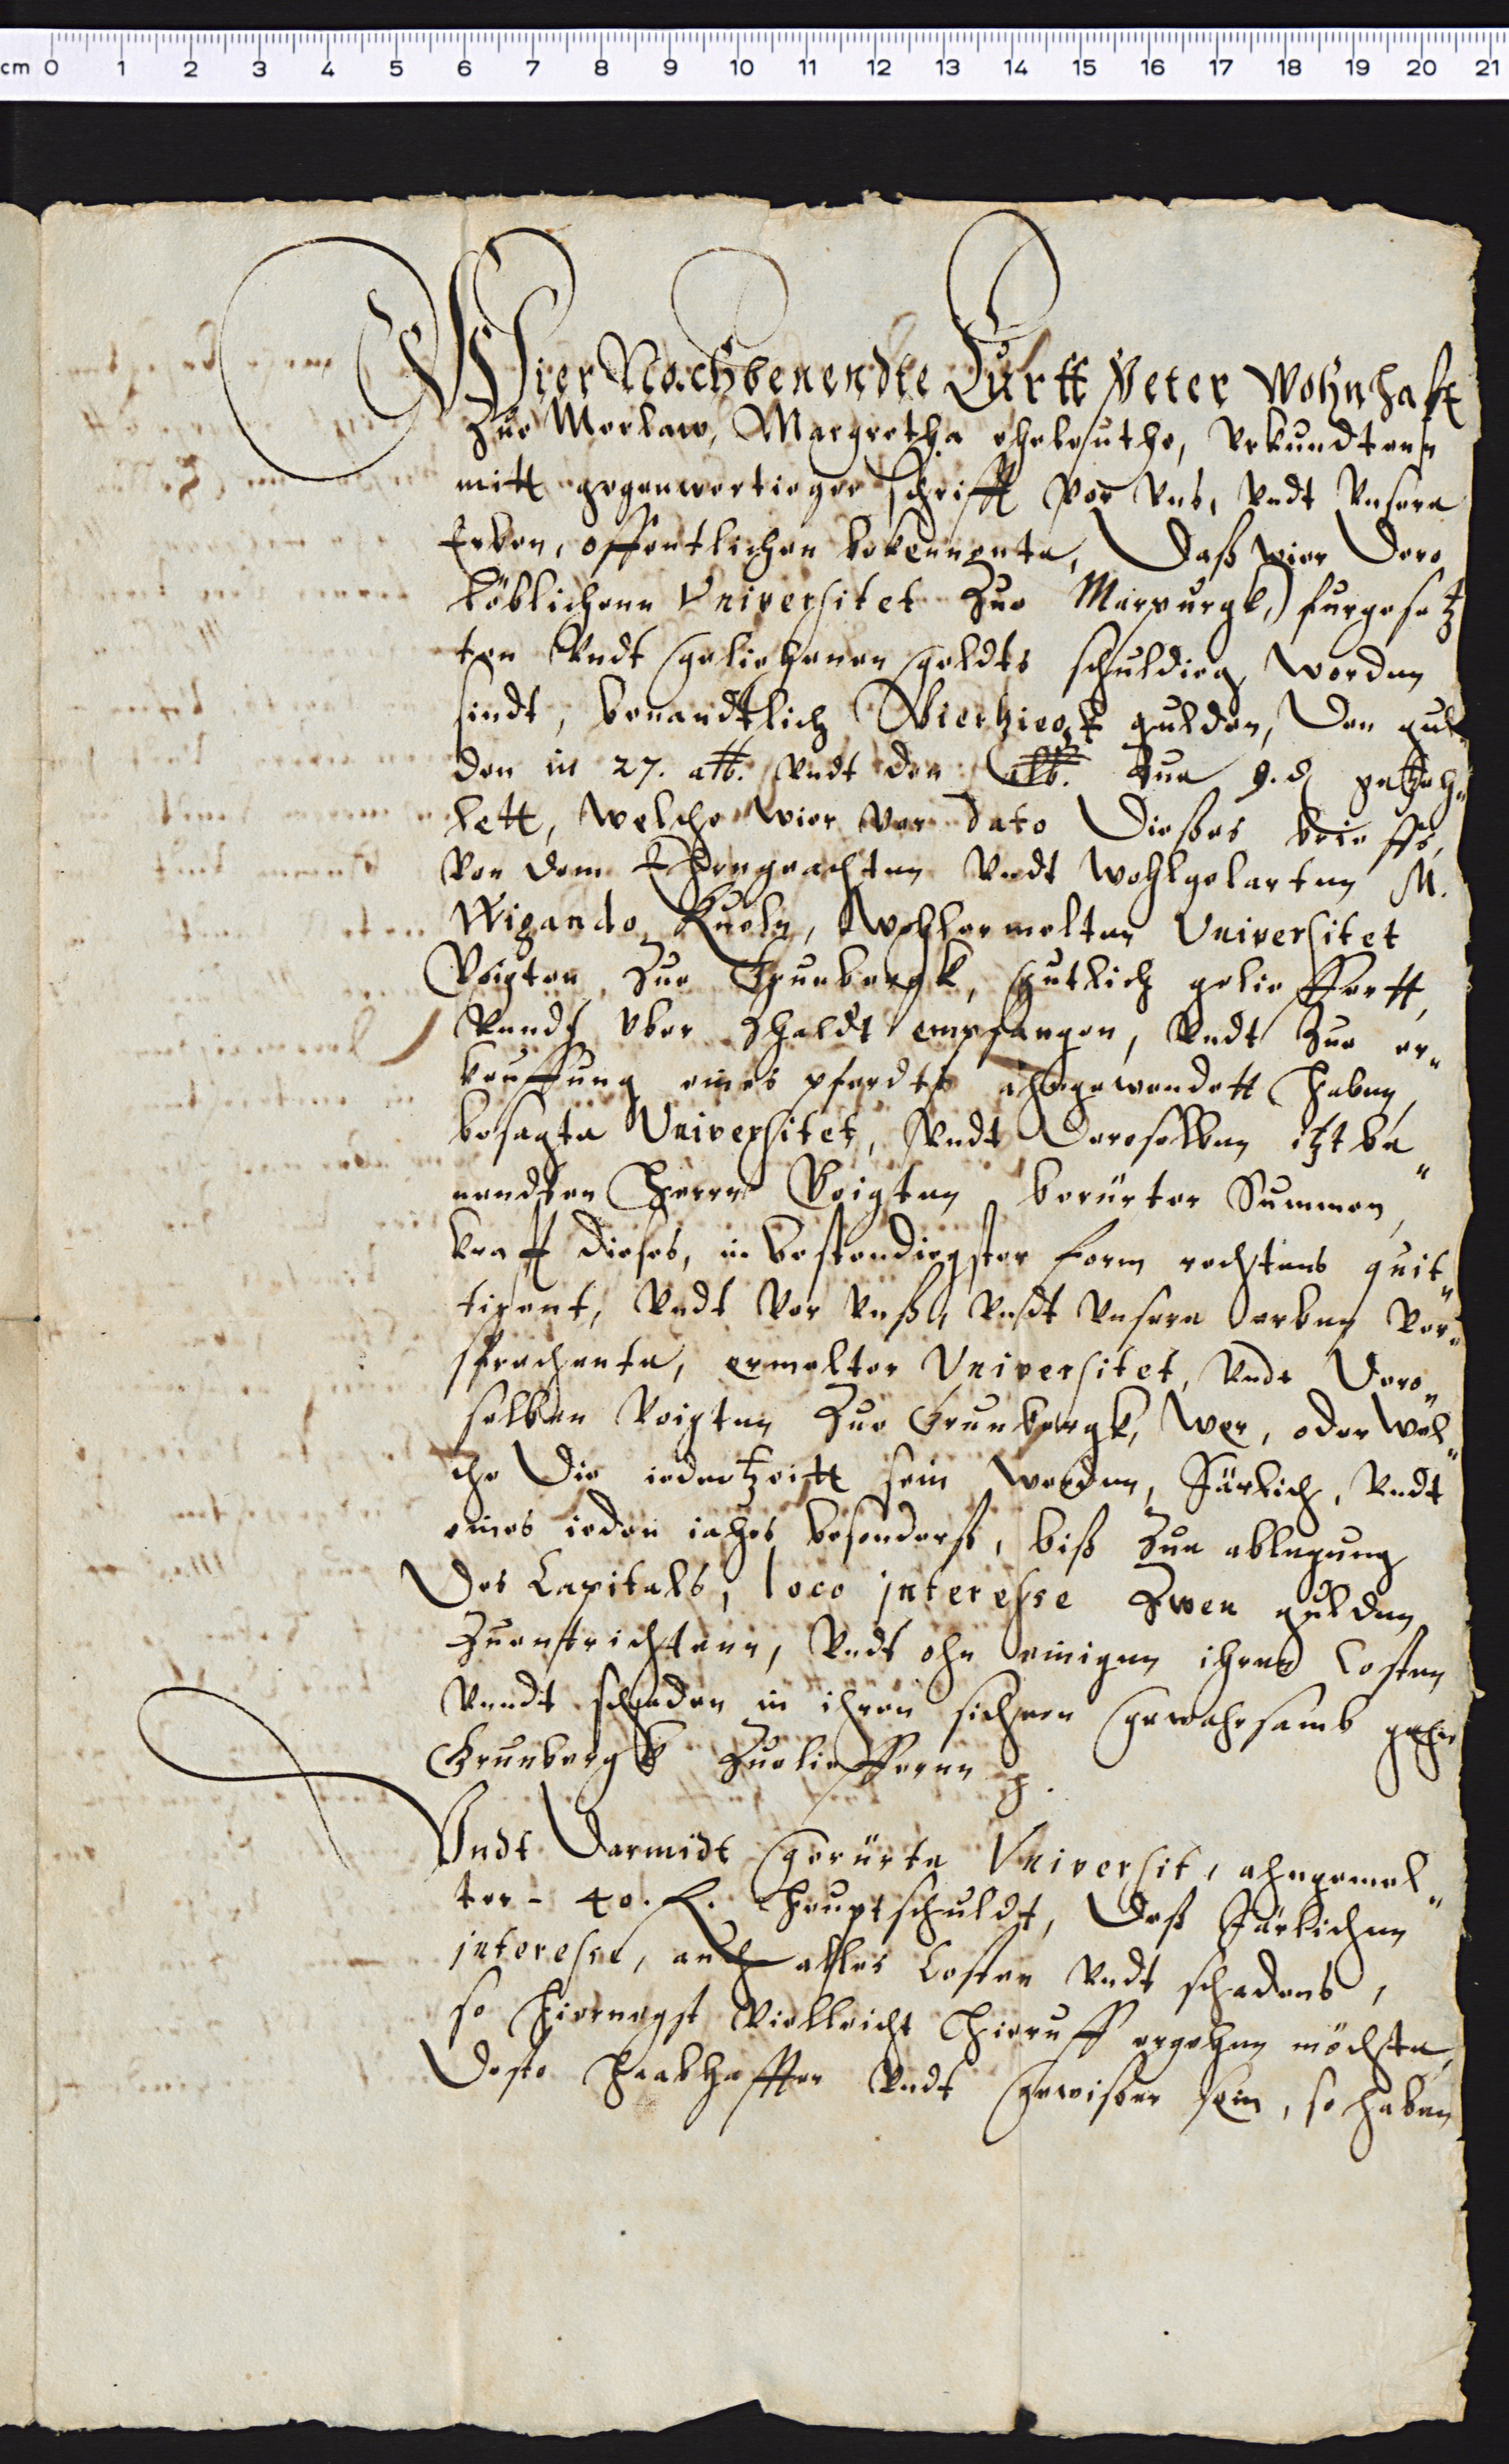 cm 0 1 2 3 4 5 6 7 8 9 10 11 12 13 14 15 16 17 18 19 20 21
Wier Nachbenendte Curtt Peter Wohnhafft
Zue Merlaw, Margretha eheleuthe, Urkundtenn
mitt gegenwertieger schrifft vor uns, undt unsere
Erben, offentlichen bekennente, Daß wier Dero
löblichenn Universitet Zue Marpurgk, furgesetz
ten undt geliehenen geldts schuldieg worden
sindt, benandtlich Vierziegk gulden, Den gul„
den in 27. alb. undt den alb. Zue 9. d gezeh„
lett, welche wier vor dato Dießes brieffs,
von dem Ehrngeachten undt wohlgelarten M.
Wigando Kueln, wohlermelten Universitet
Voigten Zue Grunbergk, gutlich gelieffertt,
undt uber Zhaldt empfangen, undt Zue er„
kauffung eines pferdts ahngewendett haben,
besagte Universitet, undt Deroselben itzt be„
nendten Herrn Voigten berürter Summen,
krafft dieses, in bestendiegster form rechtens quit„
tirent, undt vor unß, undt unsere erben ver„
sprechente, ermelter Universitet, undt Dero„
selben Voigten Zue Grunbergk, wer, oder wel„
che Die iederzeitt sein werden, Järlich, undt
eines ieden iahrs besonderß, biß Zue ablegung
Des Capitals, loco interesse Zwen gulden
Zuentrichtenn, undt ohn einigen ihren Costen
undt schaden in ihren sichern gewahrsamb gehn
Grunbergk Zuelieffernn p.
Undt Darmidt gerürte Universit, ahngemel„
ter 40. fl. Hauptschuldt, Deß Järlichen
interesse, auch alles Costen undt schadens,
so hiernegst vielleicht hieruff ergehen möchte,
Desto haabhaffter undt gewißer sein, so haben